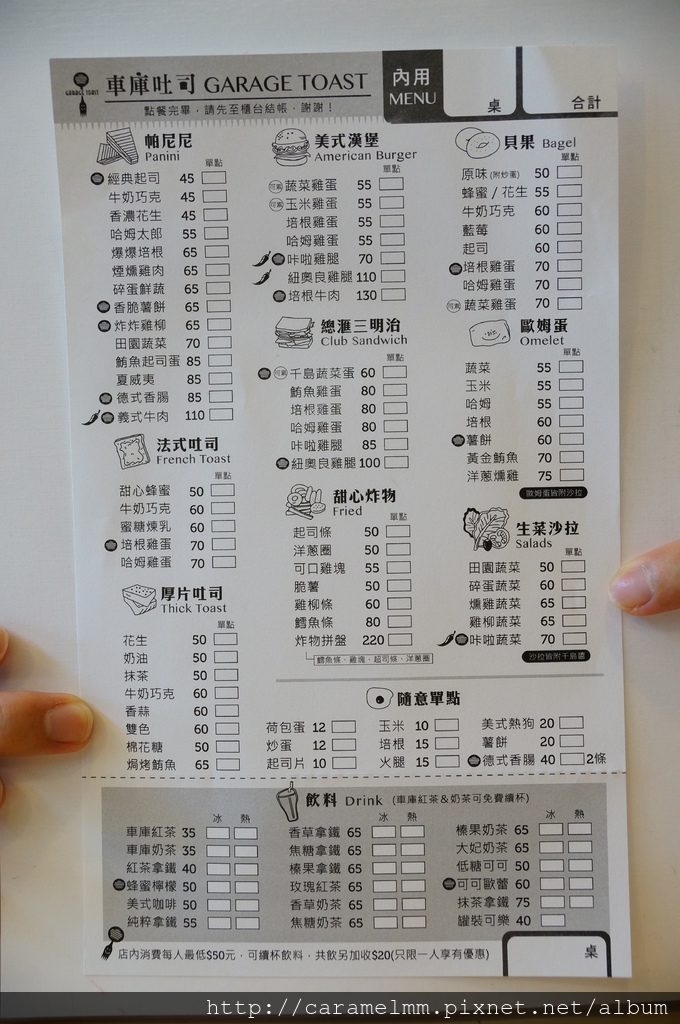 GARAGE TOAST
車庫吐司 GARAGE TOAST
點餐完畢，請先至櫃台結帳，謝謝！
內用
MENU
桌
合計
帕尼尼
Panini
單點
經典起司 45
牛奶巧克 45
香濃花生 45
哈姆太郎 55
爆爆培根 65
煙燻雞肉 65
碎蛋鮮蔬 65
香脆薯餅 65
炸炸雞柳 65
田園蔬菜 70
鮪魚起司蛋 85
夏威夷 85
德式香腸 85
義式牛肉 110
法式吐司
French Toast
單點
甜心蜂蜜 50
牛奶巧克 60
蜜糖煉乳 60
培根雞蛋 70
哈姆雞蛋 70
厚片吐司
Thick Toast
單點
花生 50
奶油 50
抹茶 50
牛奶巧克 60
香蒜 60
雙色 60
棉花糖 50
焗烤鮪魚 65
美式漢堡
American Burger
單點
可素 蔬菜雞蛋 55
可素 玉米雞蛋 55
培根雞蛋 55
哈姆雞蛋 55
咔啦雞腿 70
紐奧良雞腿 110
培根牛肉 130
總滙三明治
Club Sandwich
單點
可素 千島蔬菜蛋 60
鮪魚雞蛋 80
培根雞蛋 80
哈姆雞蛋 80
咔啦雞腿 85
紐奧良雞腿 100
甜心炸物
Fried
單點
起司條 50
洋蔥圈 50
可口雞塊 55
脆薯 50
雞柳條 60
鱈魚條 80
炸物拼盤 220
鱈魚條、雞塊、起司條、洋蔥圈
貝果 Bagel
單點
原味(附炒蛋) 50
蜂蜜/花生 55
牛奶巧克 60
藍莓 60
起司 60
培根雞蛋 70
哈姆雞蛋 70
可素 蔬菜雞蛋 70
歐姆蛋
Omelet
單點
蔬菜 55
玉米 55
哈姆 55
培根 60
薯餅 60
黃金鮪魚 70
洋蔥燻雞 75
歐姆蛋皆附沙拉
生菜沙拉
Salads
單點
田園蔬菜 50
碎蛋蔬菜 60
燻雞蔬菜 65
雞柳蔬菜 65
咔啦蔬菜 70
沙拉皆附千島醬
隨意單點
荷包蛋 12 玉米 10 美式熱狗 20
炒蛋 12 培根 15 薯餅 20
起司片 10 火腿 15 德式香腸 40 2條
飲料 Drink (車庫紅茶&奶茶可免費續杯)
冰 熱 冰 熱 冰 熱
車庫紅茶 35 香草拿鐵 65 榛果奶茶 65
車庫奶茶 35 焦糖拿鐵 65 大妃奶茶 65
紅茶拿鐵 40 榛果拿鐵 65 低糖可可 50
蜂蜜檸檬 50 玫瑰紅茶 65 可可歐蕾 60
美式咖啡 50 香草奶茶 65 抹茶拿鐵 75
純粹拿鐵 55 焦糖奶茶 65 罐裝可樂 40
店內消費每人最低$50元，可續杯飲料，共飲另加收$20(只限一人享有優惠)
桌
http://caramelmm.pixnet.net/album